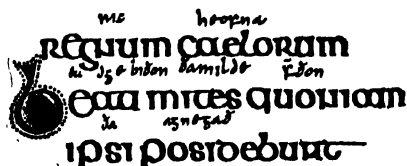 heofna
regnum caelorum
eadge biðon ða milde f̄ðon
Beati mites quoniam
ða agnegað
ipsi posidebunt